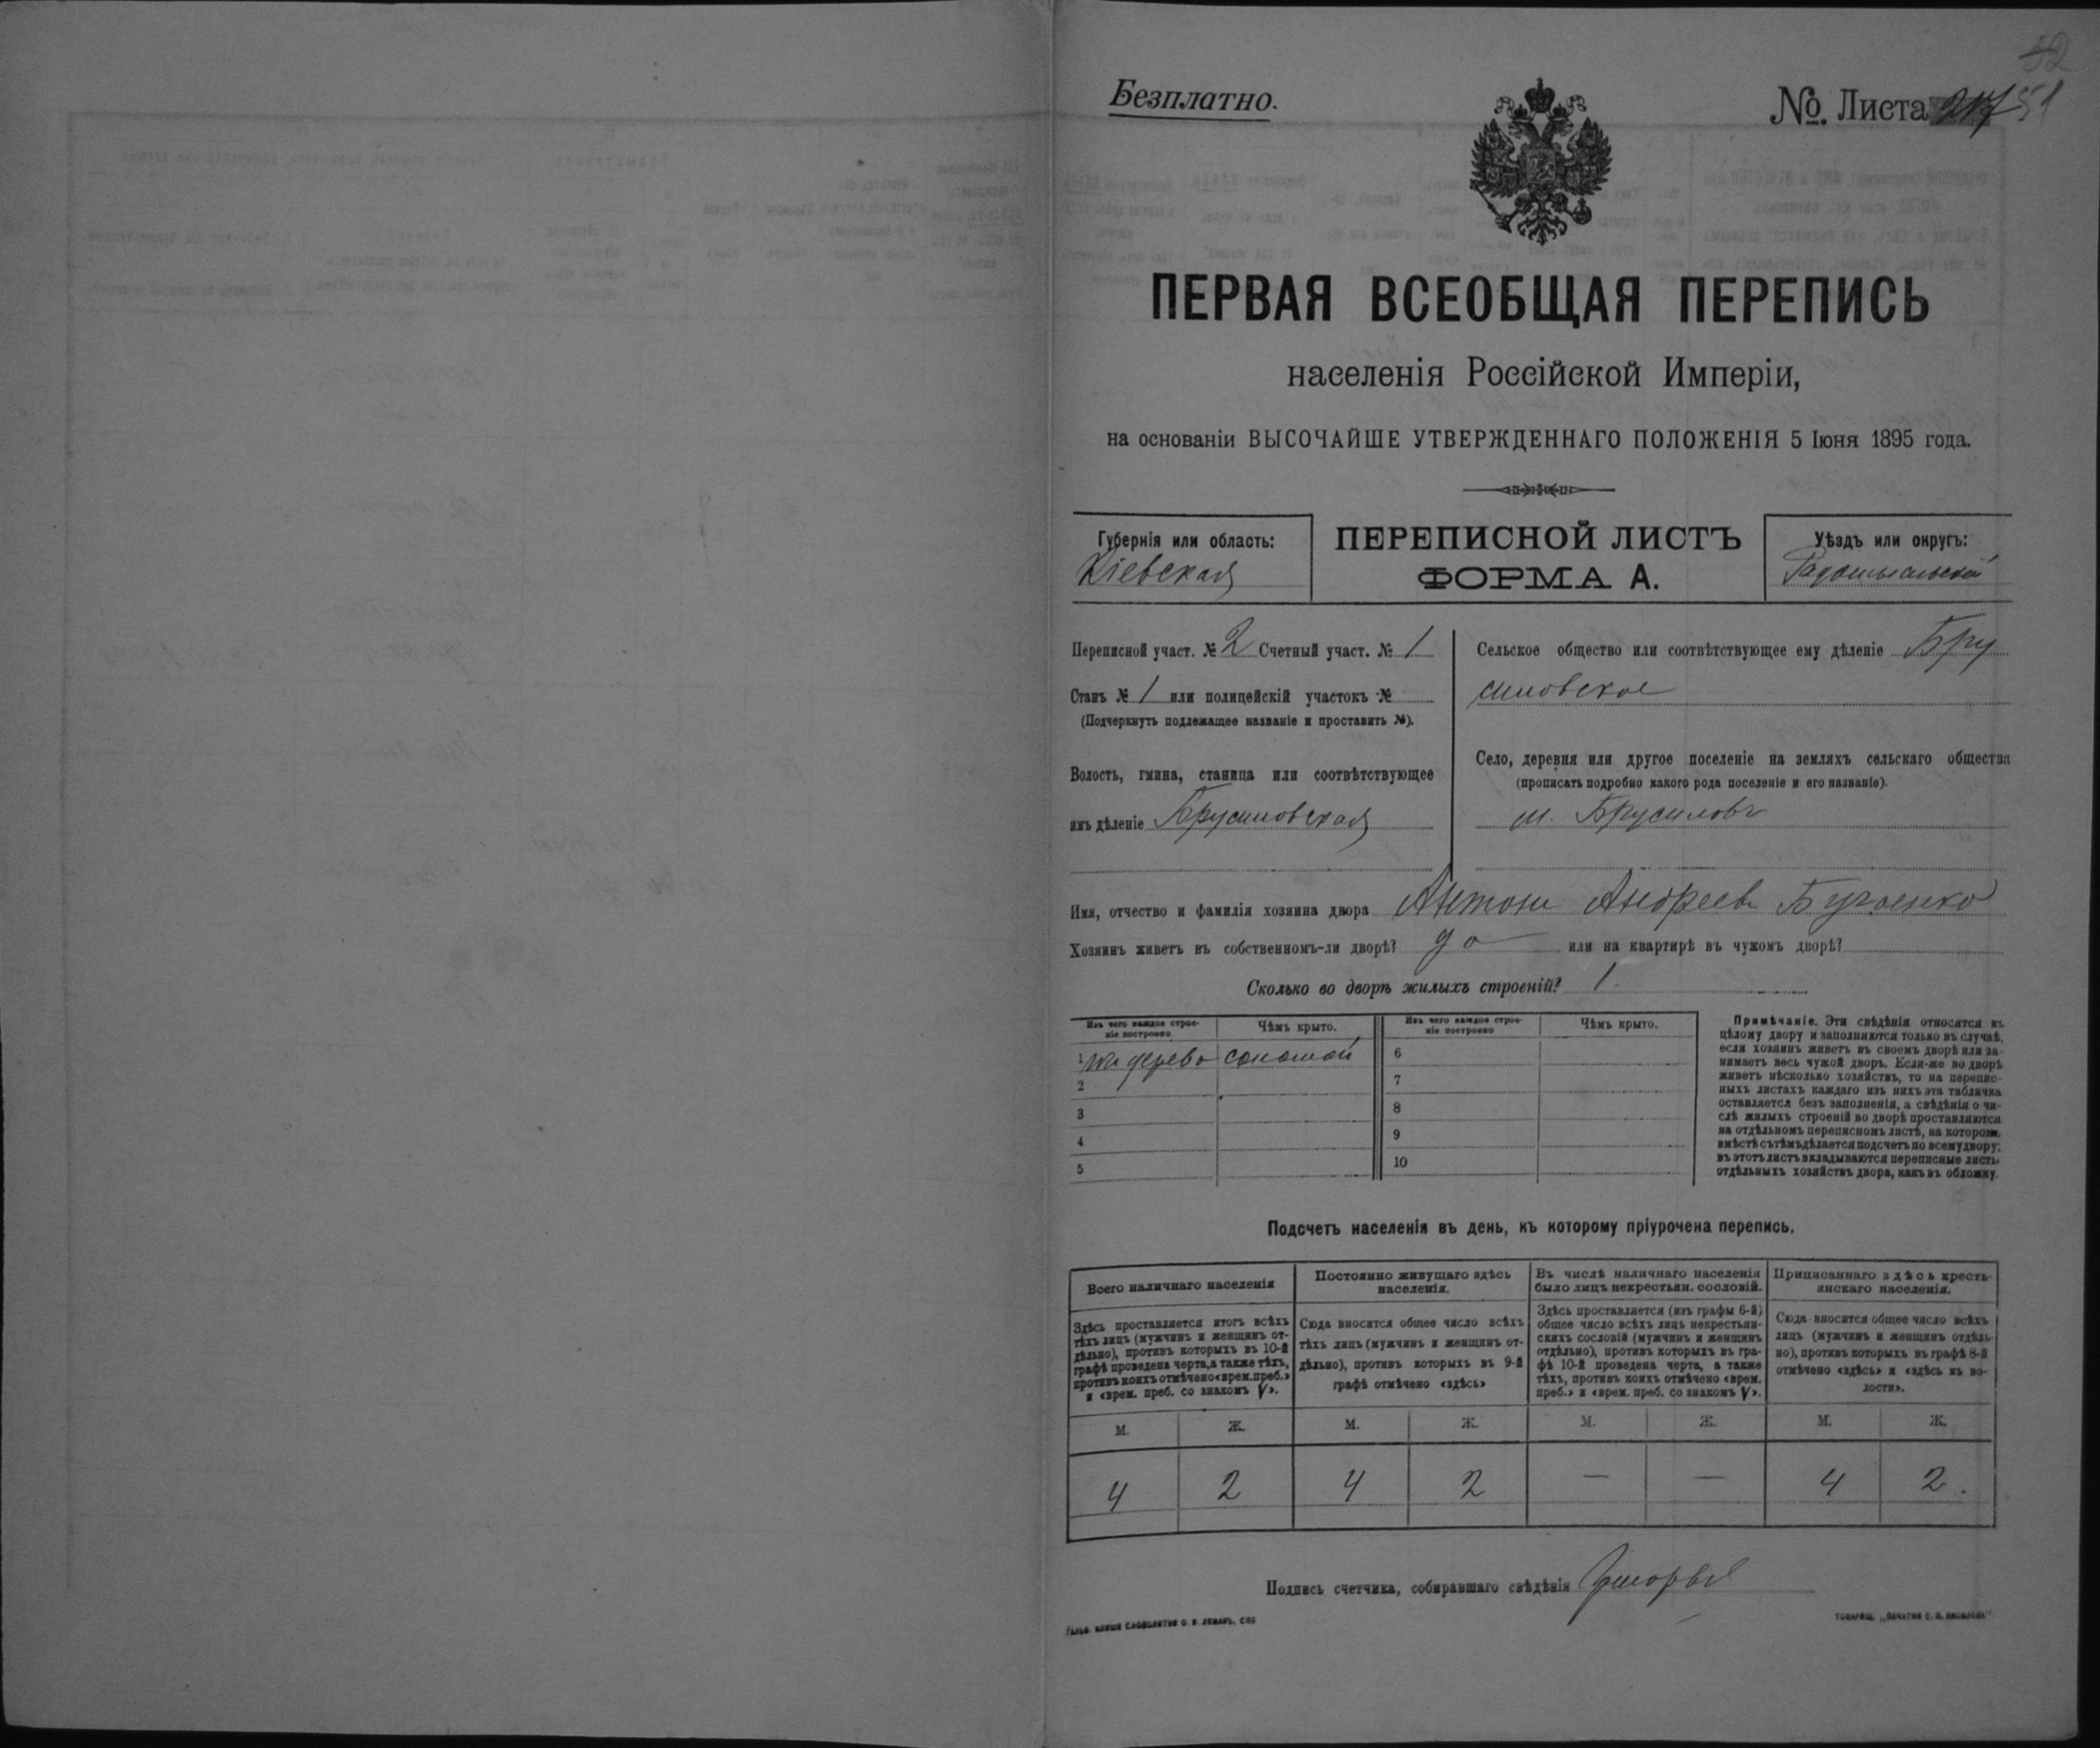 Безплатно.
52
№. Листа 217 51
ПЕРВАЯ ВСЕОБЩАЯ ПЕРЕПИСЬ
населенія Россійской Имперіи,
на основаніи ВЫСОЧАЙШЕ УТВЕРЖДЕННАГО ПОЛОЖЕНІЯ 5 Іюня 1895 года.
Губернія или область:
Кіевская
ПЕРЕПИСНОЙ ЛИСТЪ
ФОРМА А.
Уѣздъ или округъ:
Радомысльскій
Переписной участ. № 2 Счетный участ. № 1
Станъ № 1 или полицейскій участокъ №
(Подчеркнуть подлежащее названіе и проставить №).
Волость, гмина, станица или соотвѣтствующее
имъ дѣленіе Брусиловская
Сельское общество или соотвѣтствующее ему дѣленіе Бру
силовское
Село, деревня или другое поселеніе на земляхъ сельскаго общества
(прописать подробно какого рода поселеніе и его названіе).
м. Брусиловъ
Имя, отчество и фамилія хозяина двора Антон Андреев
Хозяинъ живетъ въ собственномъ-ли дворѣ? да или на квартирѣ въ чужомъ дворѣ?
Сколько во дворѣ жилыхъ строеній? 1.
Изъ чего каждое строе-
ніе построено
Чѣмъ крыто.
Изъ чего каждое строе-
ніе построено
Чѣмъ крыто.
1 дерева соломой
2
3
4
5
6
7
8
9
10
Примѣчаніе. Эти свѣдѣнія относятся къ
цѣлому двору и заполняются только въ случаѣ,
если хозяинъ живетъ въ своемъ дворѣ или за-
нимаетъ весь чужой дворъ. Если-же во дворѣ
живетъ нѣсколько хозяйствъ, то на перепис-
ныхъ листахъ каждаго изъ нихъ эта табличка
оставляется безъ заполненія, а свѣдѣнія о чи-
слѣ жилыхъ строеній во дворѣ проставляются
на отдѣльномъ переписномъ листѣ, на которомъ
вмѣстѣ съ тѣмъ дѣлается подсчетъ по всему двору;
въ этотъ листъ вкладываются переписные листы
отдѣльныхъ хозяйствъ двора, какъ въ обложку.
Подсчетъ населенія въ день, къ которому пріурочена перепись.
Всего наличнаго населенія
Здѣсь проставляется итогъ всѣхъ
тѣхъ лицъ (мужчинъ и женщинъ от-
дѣльно), противъ которыхъ въ 10-й
графѣ проведена черта, а также тѣхъ,
противъ коихъ отмѣчено «врем. преб.»
и «врем. преб. со знакомъ V».
Постоянно живущаго здѣсь
населенія.
Сюда вносится общее число всѣхъ
тѣхъ лицъ (мужчинъ и женщинъ от-
дѣльно), противъ которыхъ въ 9-й
графѣ отмѣчено «здѣсь»
Въ числѣ наличнаго населенія
было лицъ некрестьян. сословій.
Здѣсь проставляется (изъ графы 6-й)
общее число всѣхъ лицъ некрестьян-
скихъ сословій (мужчинъ и женщинъ
отдѣльно), противъ которыхъ въ гра-
фѣ 10-й проведена черта, а также
тѣхъ, противъ коихъ отмѣчено «врем.
преб.» и «врем. преб. со знакомъ V».
Приписаннаго здѣсь кресть-
янскаго населенія.
Сюда вносится общее число всѣхъ
лицъ (мужчинъ и женщинъ отдѣль-
но), противъ которыхъ въ графѣ 8-й
отмѣчено «здѣсь» и «здѣсь къ во-
лости».
М. Ж. М. Ж. М. Ж. М. Ж.
4 2 4 2 — — 4 2.
Подпись счетчика, собиравшаго свѣдѣнія
ГАЛЬВ. КЛИШЕ СЛОВОЛИТНИ О. И. ЛЕМАНЪ, СПБ
ТОВАРИЩ. „ПЕЧАТНЯ С. П. ЯКОВЛЕВА"